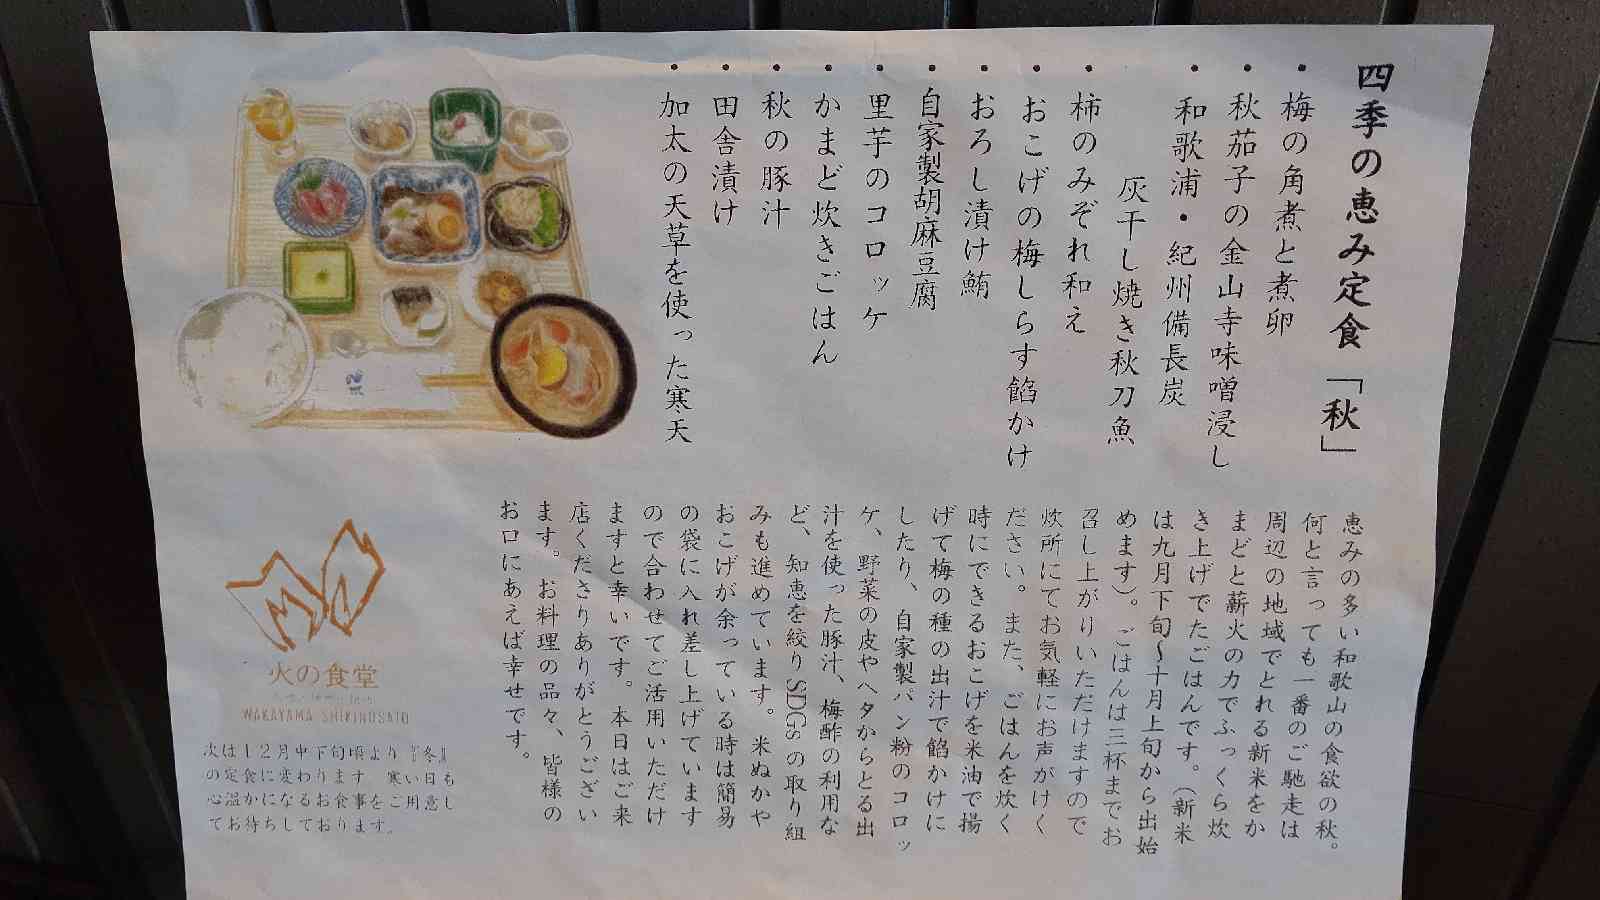 四季の恵み定食「秋」
・梅の角煮と煮卵
・秋茄子の金山寺味噌浸し
・和歌浦・紀州備長炭
灰干し焼き秋刀魚
・柿のみぞれ和え
・おこげの梅しらす餡かけ
・おろし漬け鮪
・自家製胡麻豆腐
・里芋のコロッケ
・かまど炊きごはん
・秋の豚汁
・田舎漬け
・加太の天草を使った寒天
恵みの多い和歌山の食欲の秋。
何と言っても一番のご馳走は
周辺の地域でとれる新米をか
まどと薪火の力でふっくら炊
き上げでたごはんです。（新米
は九月下旬～十月上旬から出始
めます）。ごはんは三杯までお
召し上がりいただけますので
炊所にてお気軽にお声がけく
ださい。また、ごはんを炊く
時にできるおこげを米油で揚
げて梅の種の出汁で餡かけに
したり、自家製パン粉のコロッ
ケ、野菜の皮やヘタからとる出
汁を使った豚汁、梅酢の利用な
ど、知恵を絞りSDGsの取り組
みも進めています。米ぬかや
おこげが余っている時は簡易
の袋に入れ差し上げています
ので合わせてご活用いただけ
ますと幸いです。本日はご来
店くださりありがとうござい
ます。お料理の品々、皆様の
お口にあえば幸せです。
火の食堂
WAKAYAMA SHIKINOSATO
次は12月中下旬頃より『冬』
の定食に変わります 寒い日も
心温かになるお食事をご用意し
てお待ちしております。